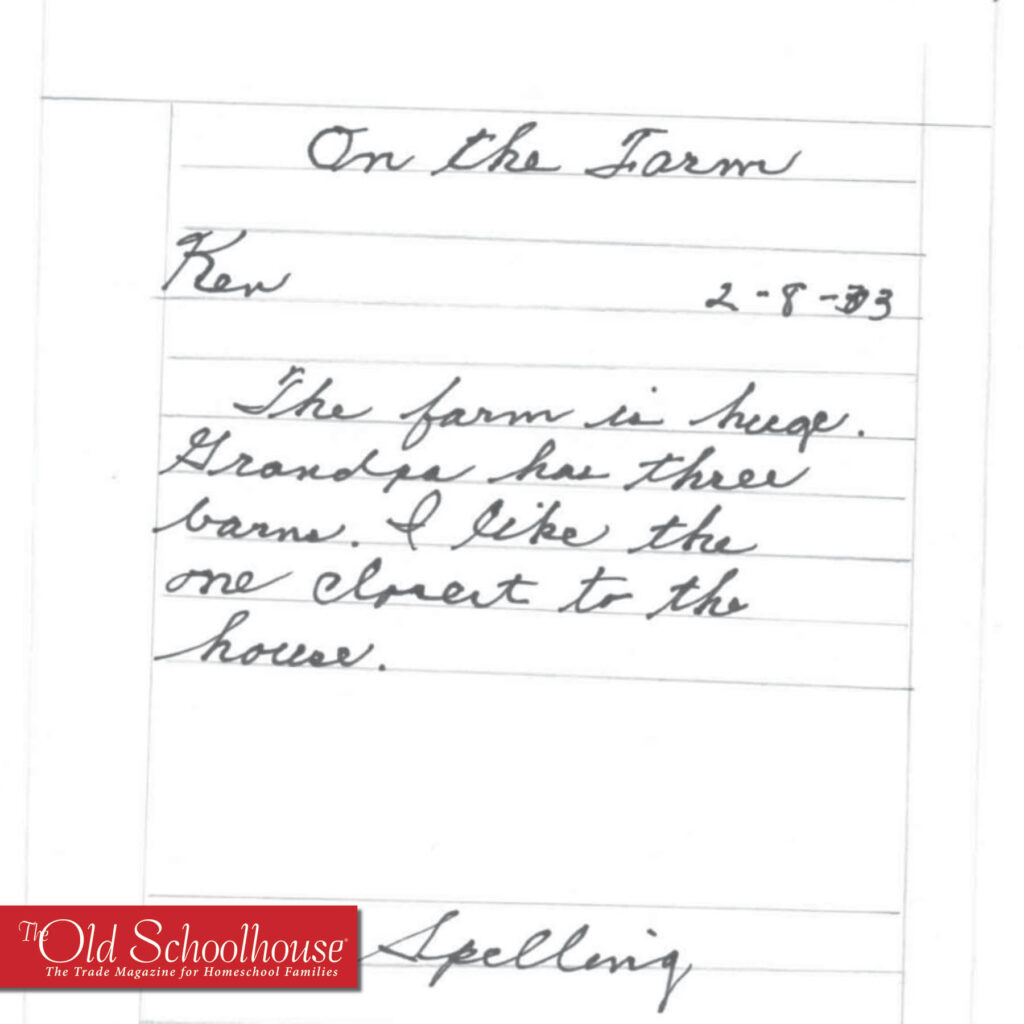 On the Farm
Ken
2-8-33
The farm is huge.
Grandpa has three
barns. I like the
one closest to the
house.
The Old Schoolhouse®
The Trade Magazine for Homeschool Families
Spelling